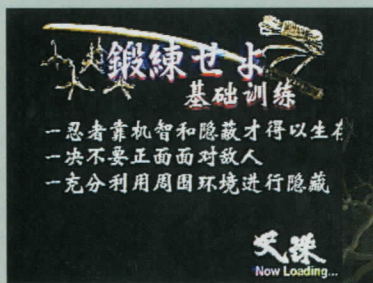 鍛練せよ
基础训练
一忍者靠机智和隐蔽才得以生存
一决不要正面面对敌人
一充分利用周围环境进行隐藏
天誅
Now Loading...